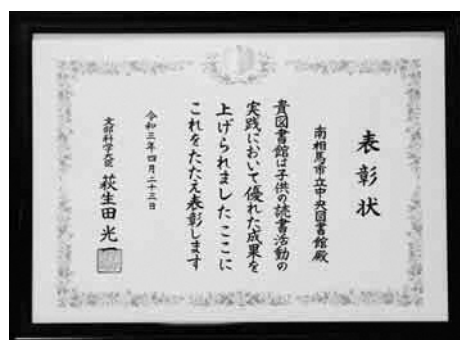 表彰状
南相馬市立中央図書館殿
貴図書館は子供の読書活動の
実践において優れた成果を
上げられましたここに
これをたたえ表彰します
令和三年四月二十三日
文部科学大臣 萩生田光一